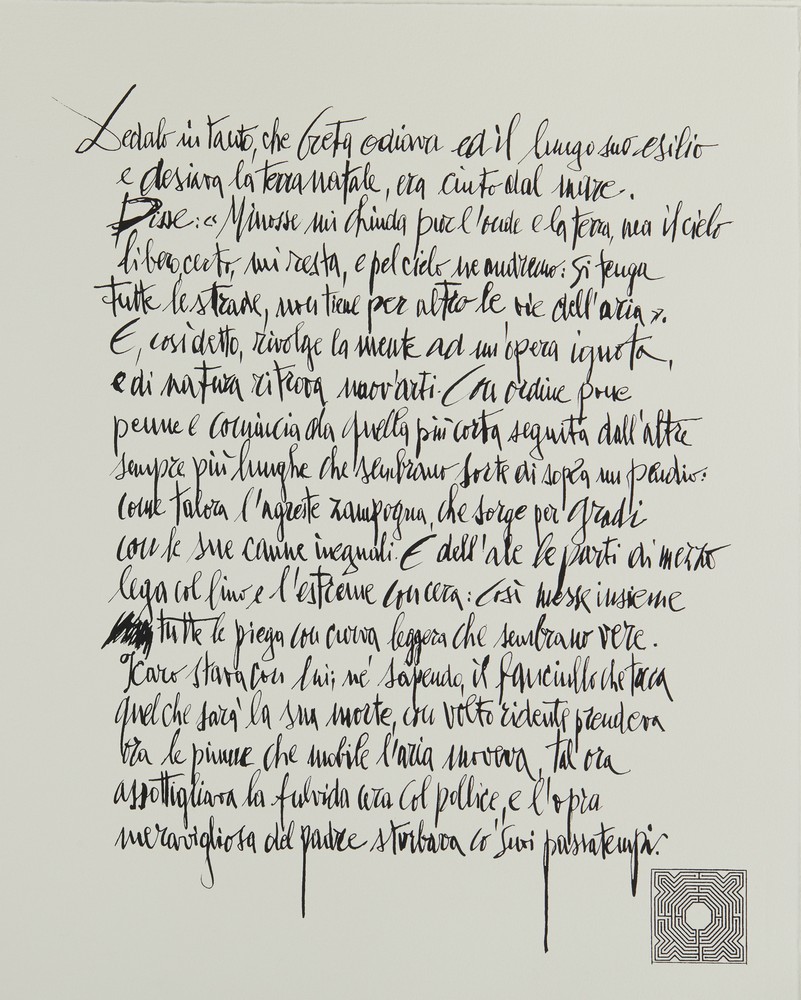 Dedalo in tanto, che Creta odiava ed il lungo suo esilio
e desiava la terra natale, era cinto dal mare.
Disse: « Minosse mi chiuda pur l'onde e la terra, ma il cielo
libero, certo, mi resta, e pel cielo ne andremo: si tenga
tutte le strade, non tiene per altro le vie dell'aria ».
E, così detto, rivolge la mente ad un'opera ignota,
e di natura ritrova nuov'arti. Con ordine pone
penne e comincia da quella più corta seguita dall'altre
sempre più lunghe che sembrano sorte di sopra un pendio:
come talora l'agreste zampogna, che sorge per gradi
con le sue canne ineguali. E dell'ale le parti di mezzo
lega col lino e l'estreme con cera: così messe insieme
tutte le piega con curva leggera che sembrano vere.
Icaro stava con lui; né sapendo, il fanciullo che tocca
quel che sarà la sua morte, con volto ridente prendeva
ora le piume che mobile l'aria moveva, tal ora
assottigliava la fulvida cera col pollice, e l'opra
meravigliosa del padre sturbava co' suoi passatempi.